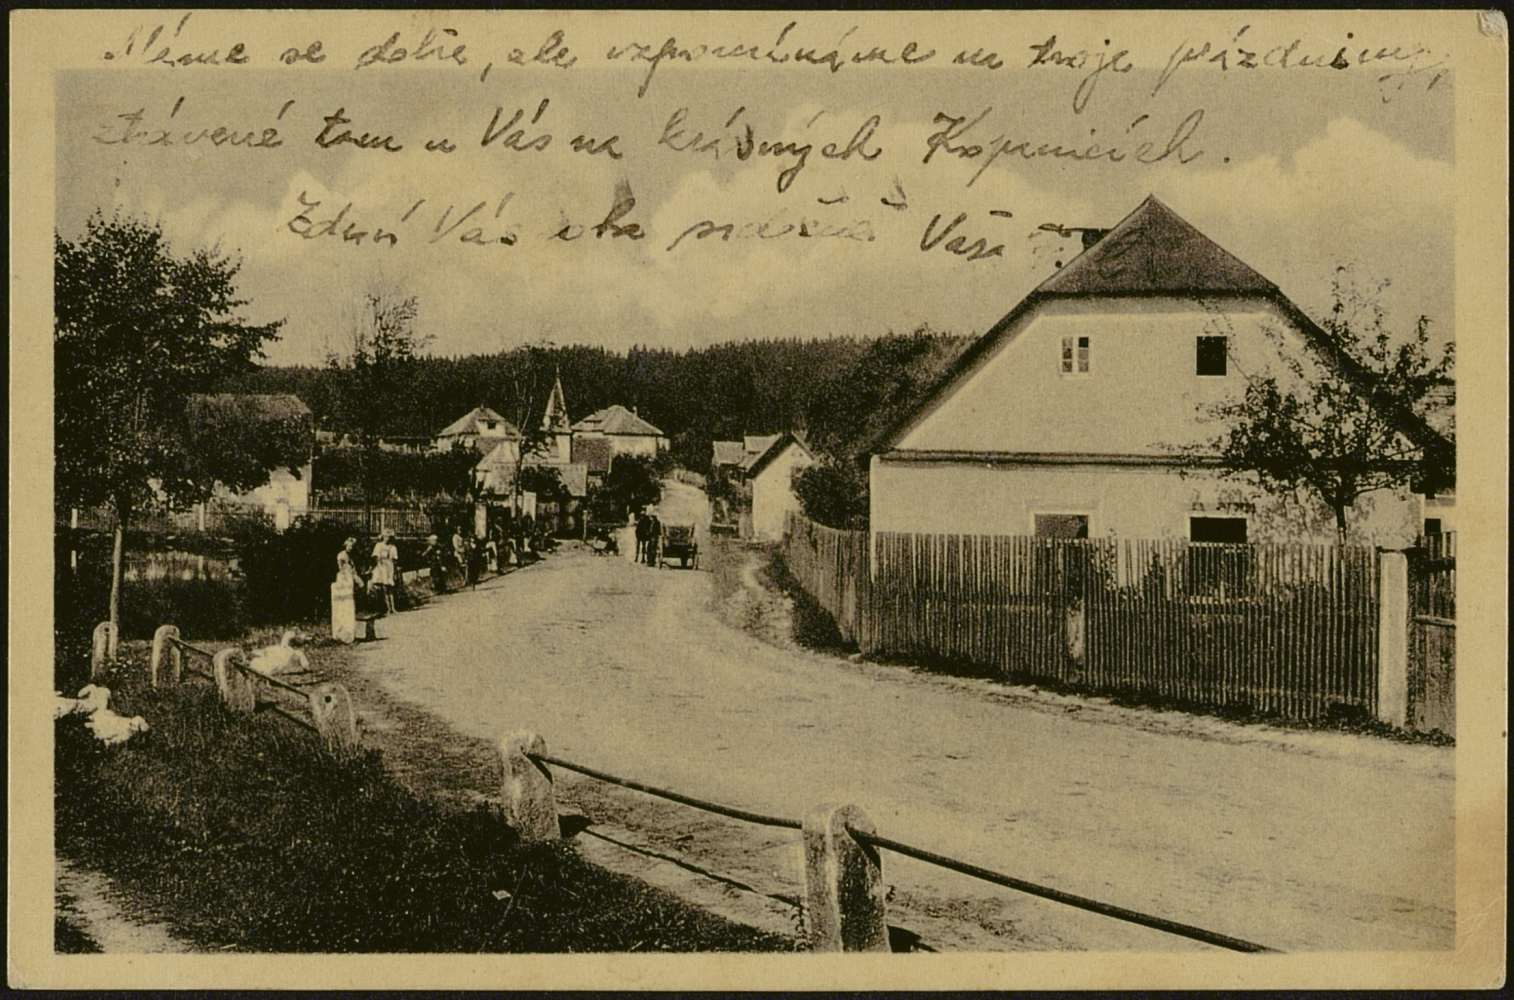 Máme se dobře, ale vzpomínáme na tvoje prázdniny
ztrávené tam u Vás na krásných Kopanicích.
Zdraví Vás oba srdečně Vaša